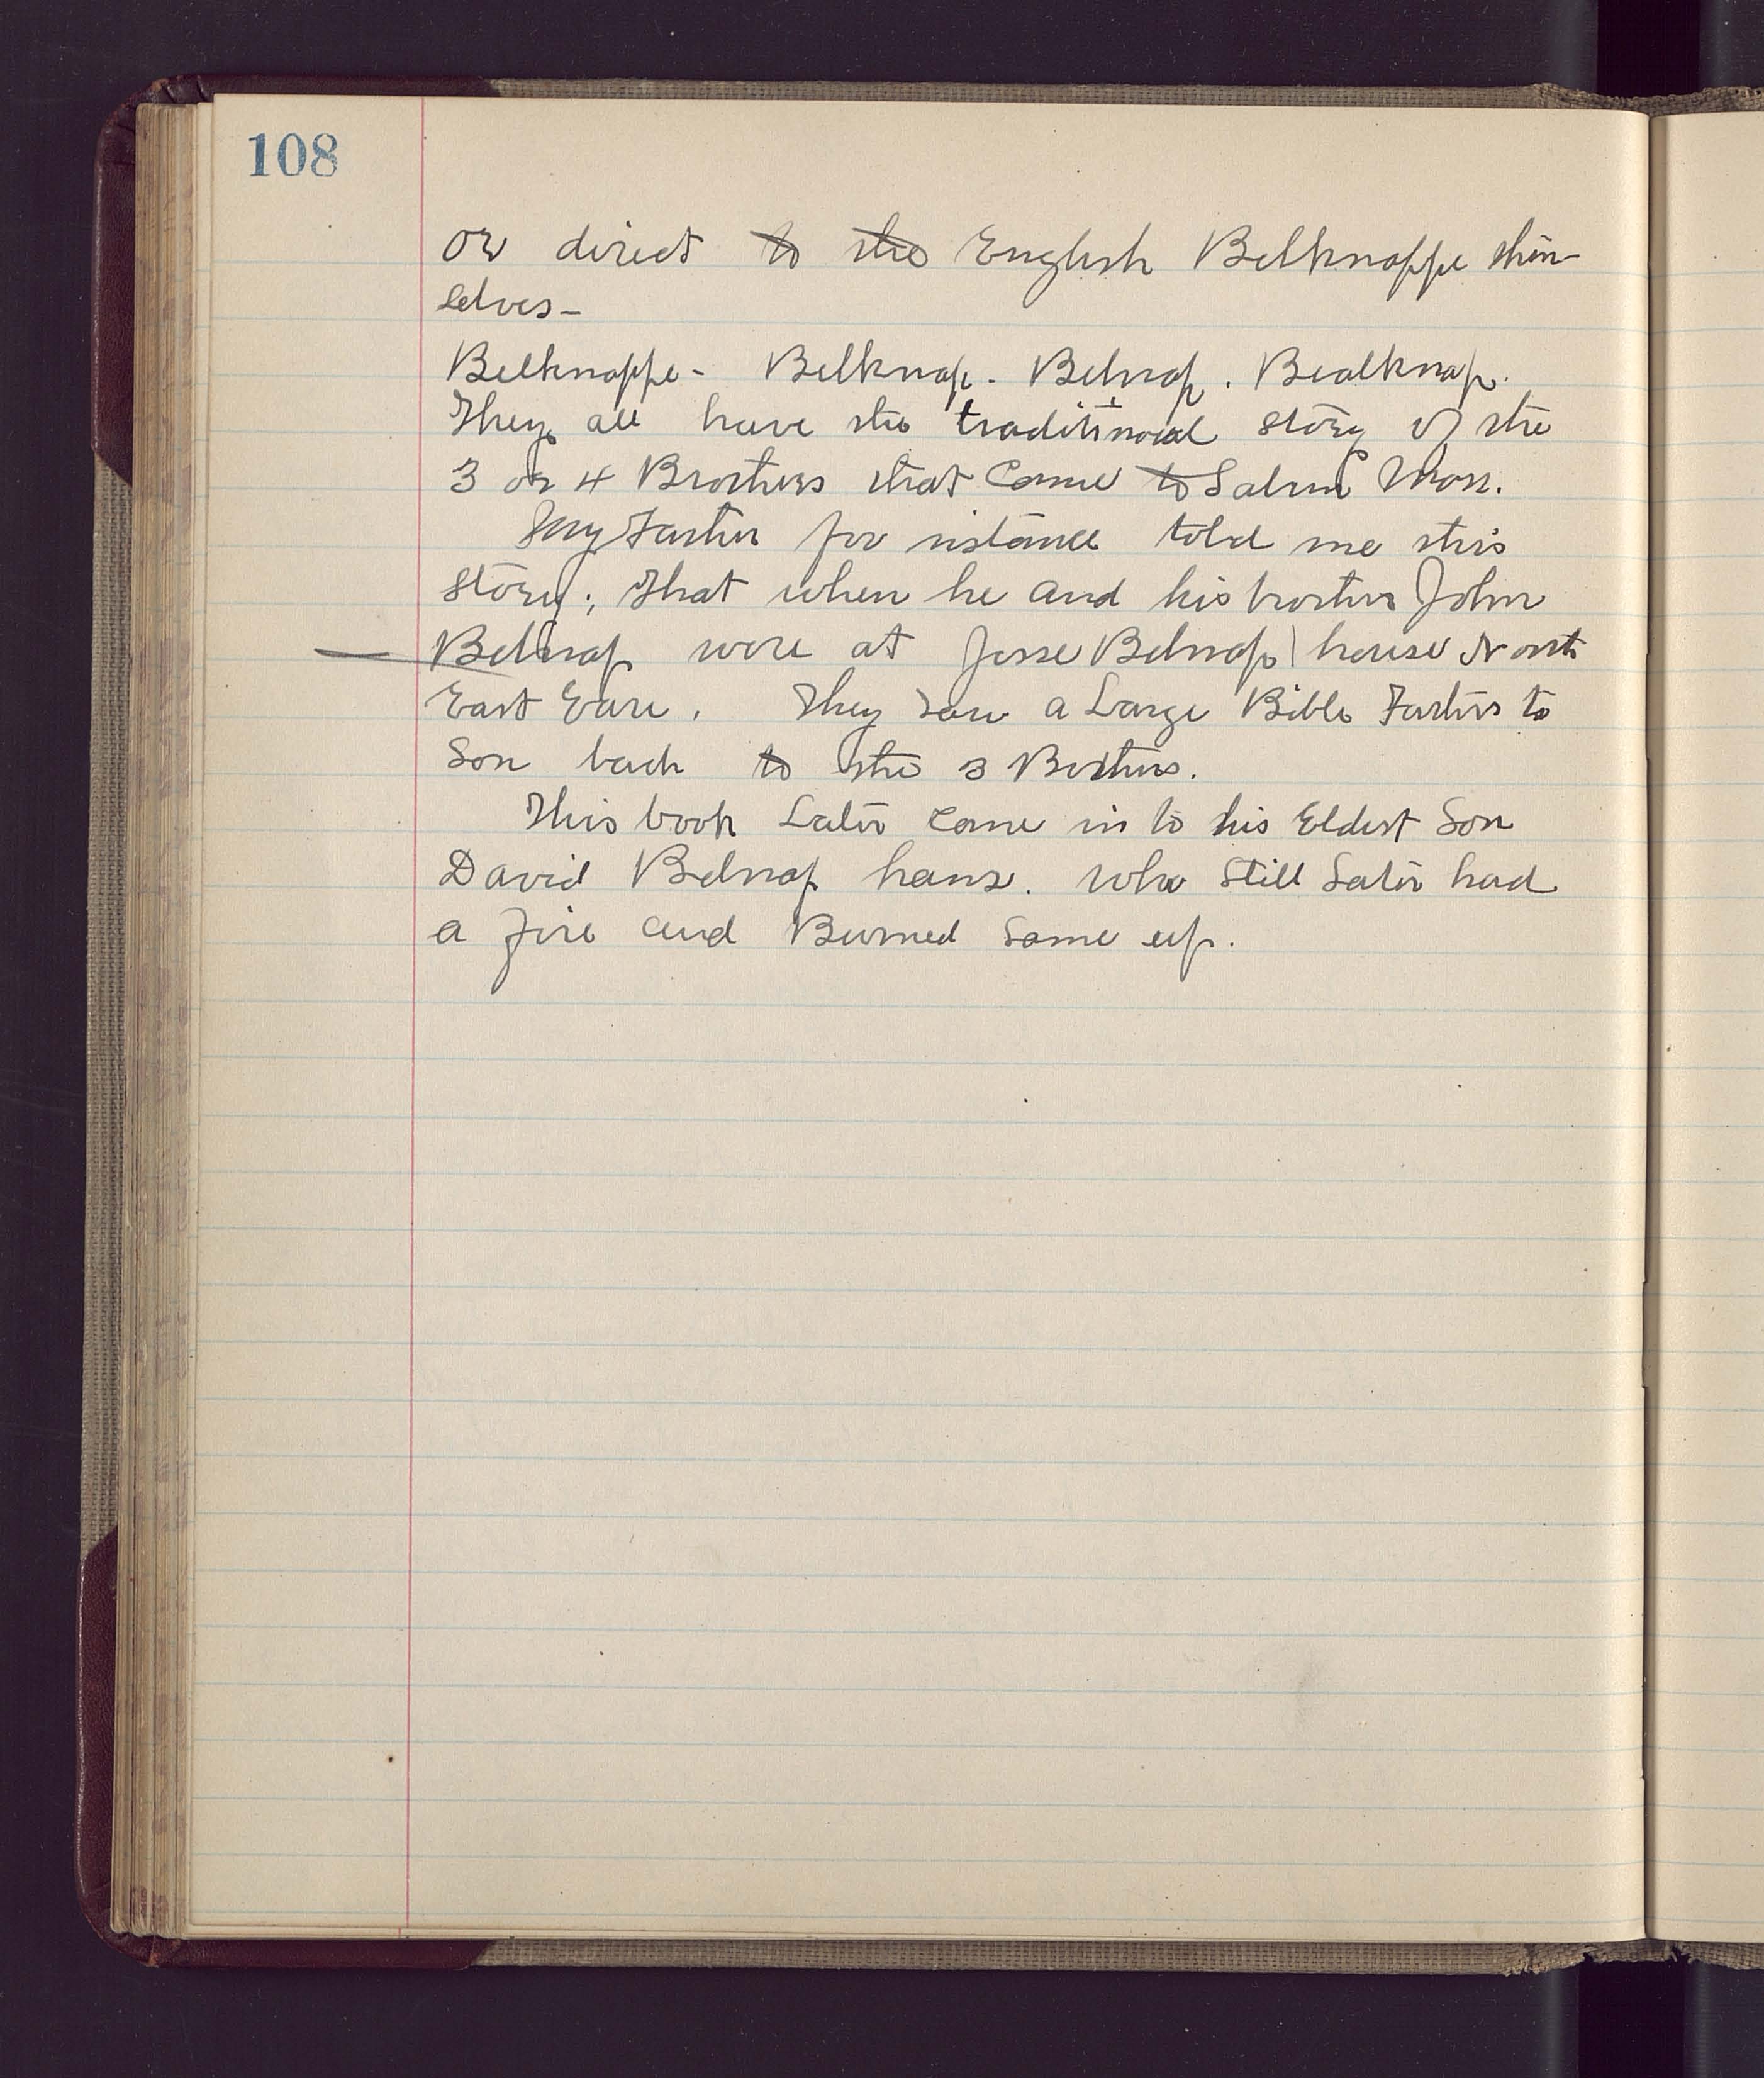 108
or direct to the English Belknappe them-
selves-
Belknappe- Belknap. Belnap. Bealknap.
They all have the traditional story of the
3 or 4 Brothers that Came to Salem Mass.
My Father for instance told me this
story; That when he and his brother John
Belnap were at Jesse Belnap house North
East Eare. They saw a Large Bible Father to
Son back to the 3 Brothers.
This book Later Come in to his Eldest Son
David Belnap hans. who still Later had
a fire and Burned same up.